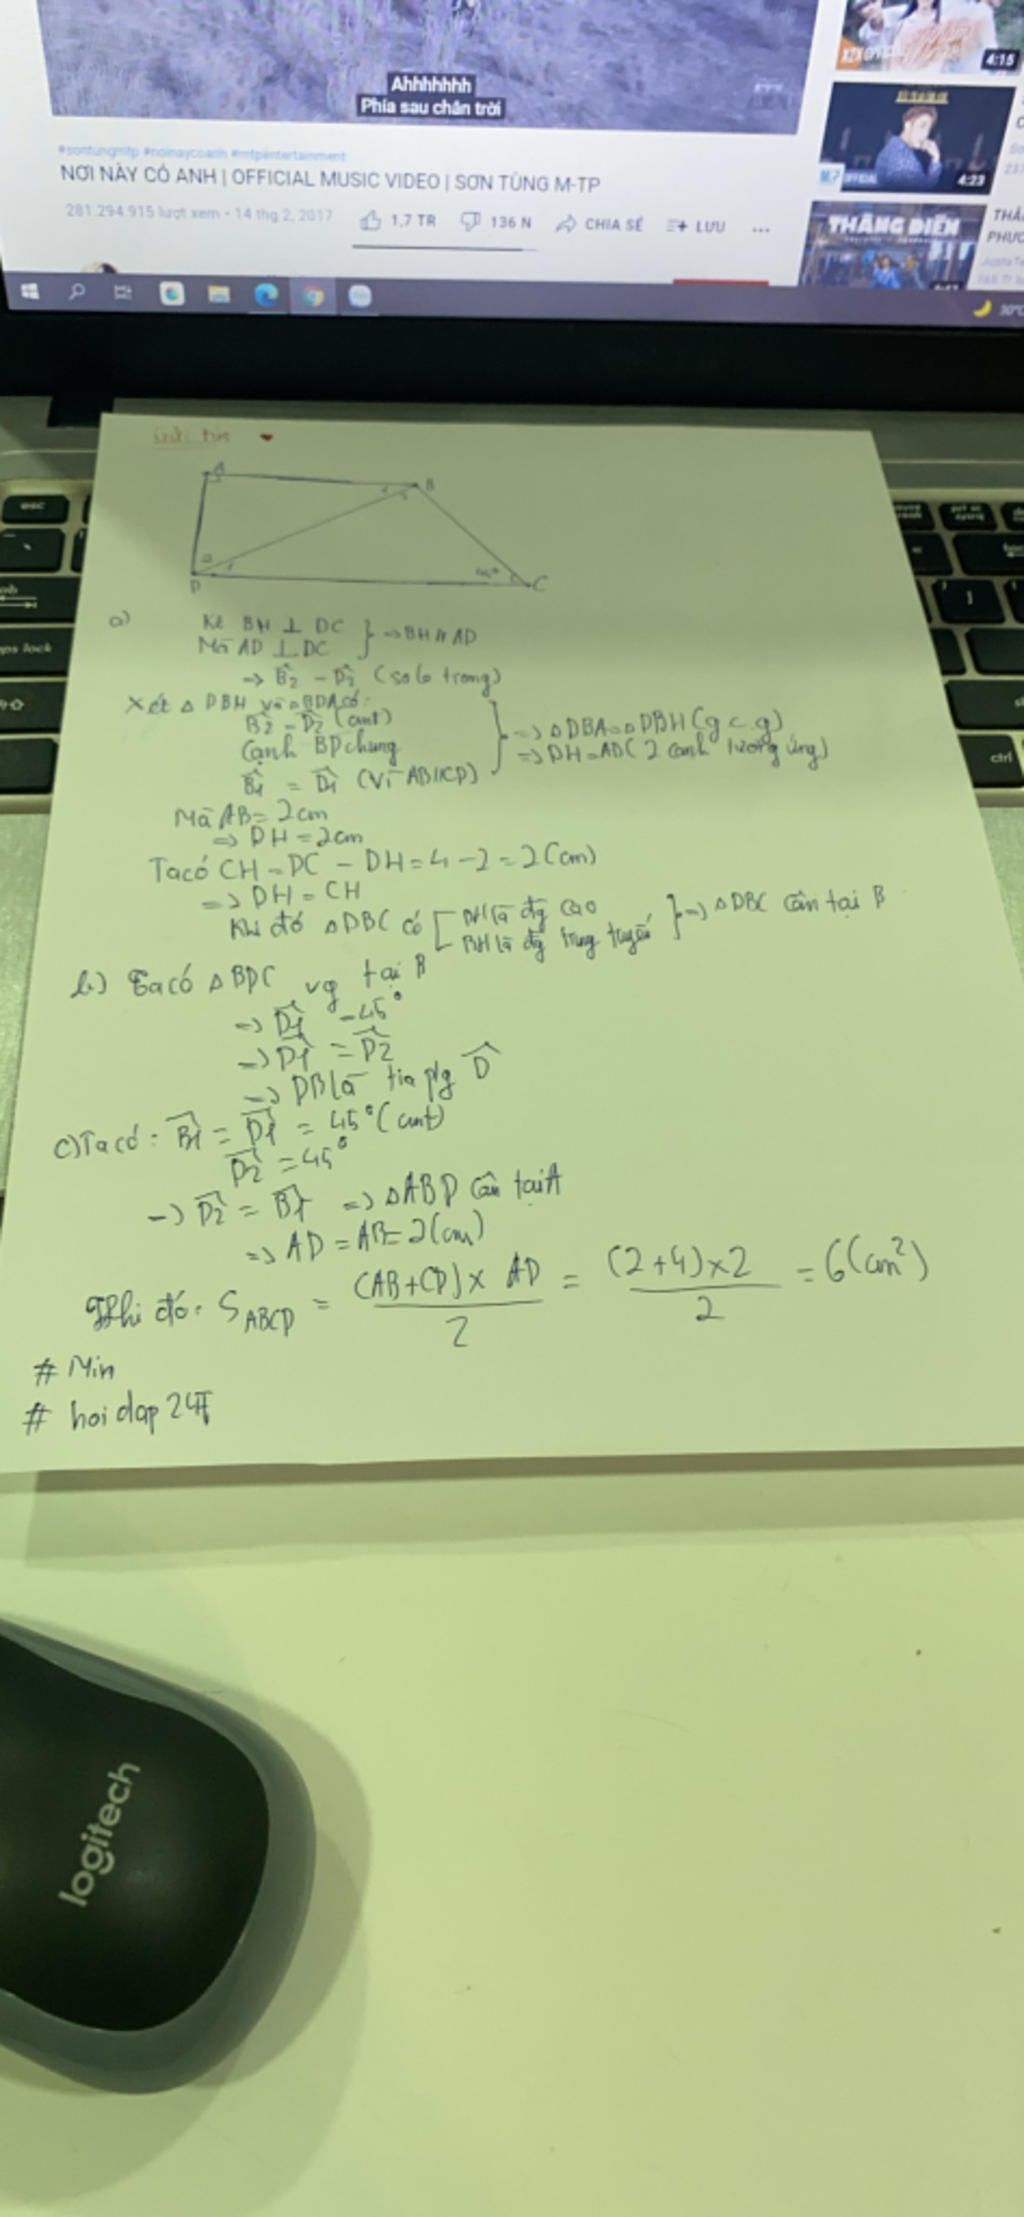 Ahhhhhhh
Phía sau chân trời
#sontungmtp #noinaycoanh #mtpentertainment
NƠI NÀY CÓ ANH | OFFICIAL MUSIC VIDEO | SƠN TÙNG M-TP
281.294.915 lượt xem • 14 thg 2, 2017
1,7 TR
136 N
CHIA SẺ
LƯU
4:15
OFFICIAL
4:23
THẰNG ĐIÊN
30°C
esc
ctrl
A
B
D
C
45°
a) Kẻ BH ⊥ DC } => BH // AD
Mà AD ⊥ DC
-> B̂2 = D̂2 (so le trong)
Xét △ DBH và △ BDA có:
B̂2 = D̂2 (cmt)
Cạnh BD chung
B̂1 = D̂1 (Vì AB//CD)
=> △DBA = △DBH (g.c.g)
=> DH = AD (2 cạnh tương ứng)
Mà AB = 2cm
=> DH = 2cm
Ta có CH = DC - DH = 4 - 2 = 2 (cm)
=> DH = CH
Khi đó △DBC có [ BH là đg cao
BH là đg trung tuyến } => △DBC cân tại B
b) Ta có △BDC vg tại B
=> D̂1 = 45°
=> D̂1 = D̂2
=> DB là tia p/g D̂
c) Ta có: B̂1 = D̂1 = 45° (cmt)
D̂2 = 45°
-> D̂2 = B̂1 => △ABD cân tại A
=> AD = AB = 2 (cm)
Khi đó: S ABCD = (AB+CD) x AD / 2 = (2+4) x 2 / 2 = 6 (cm²)
# Min
# hoi dap 247
logitech